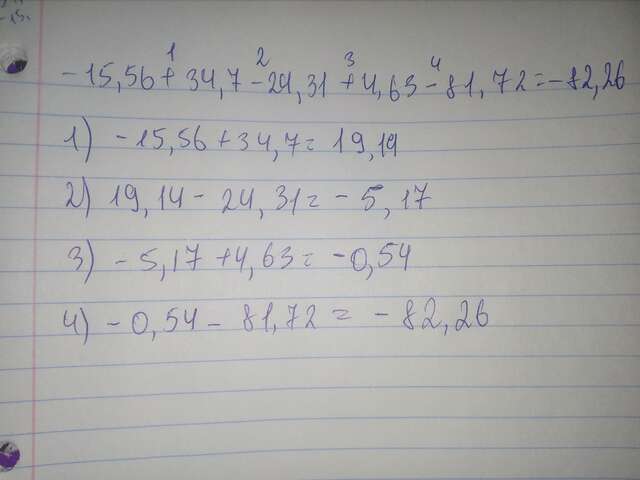 1 2 3 4
-15,56+34,7-24,31+4,63-81,72=-82,26
1) -15,56+34,7= 19,14
2) 19,14- 24,31= -5,17
3) -5,17+4,63= -0,54
4) -0,54- 81,72 = -82,26